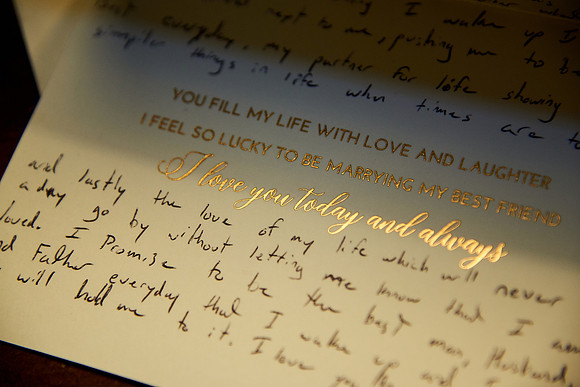 I wake up I
next to me, pushing me to
everyday, my partner for life showing
simpler things in life when times are
YOU FILL MY LIFE WITH LOVE AND LAUGHTER
I FEEL SO LUCKY TO BE MARRYING MY BEST FRIEND
I love you today and always
and lastly the love of my life which will never
a day go by without letting me know that I am
loved. I Promise to be the best man, Husband
Father everyday that I wake up and
will hold me to it. I love you for